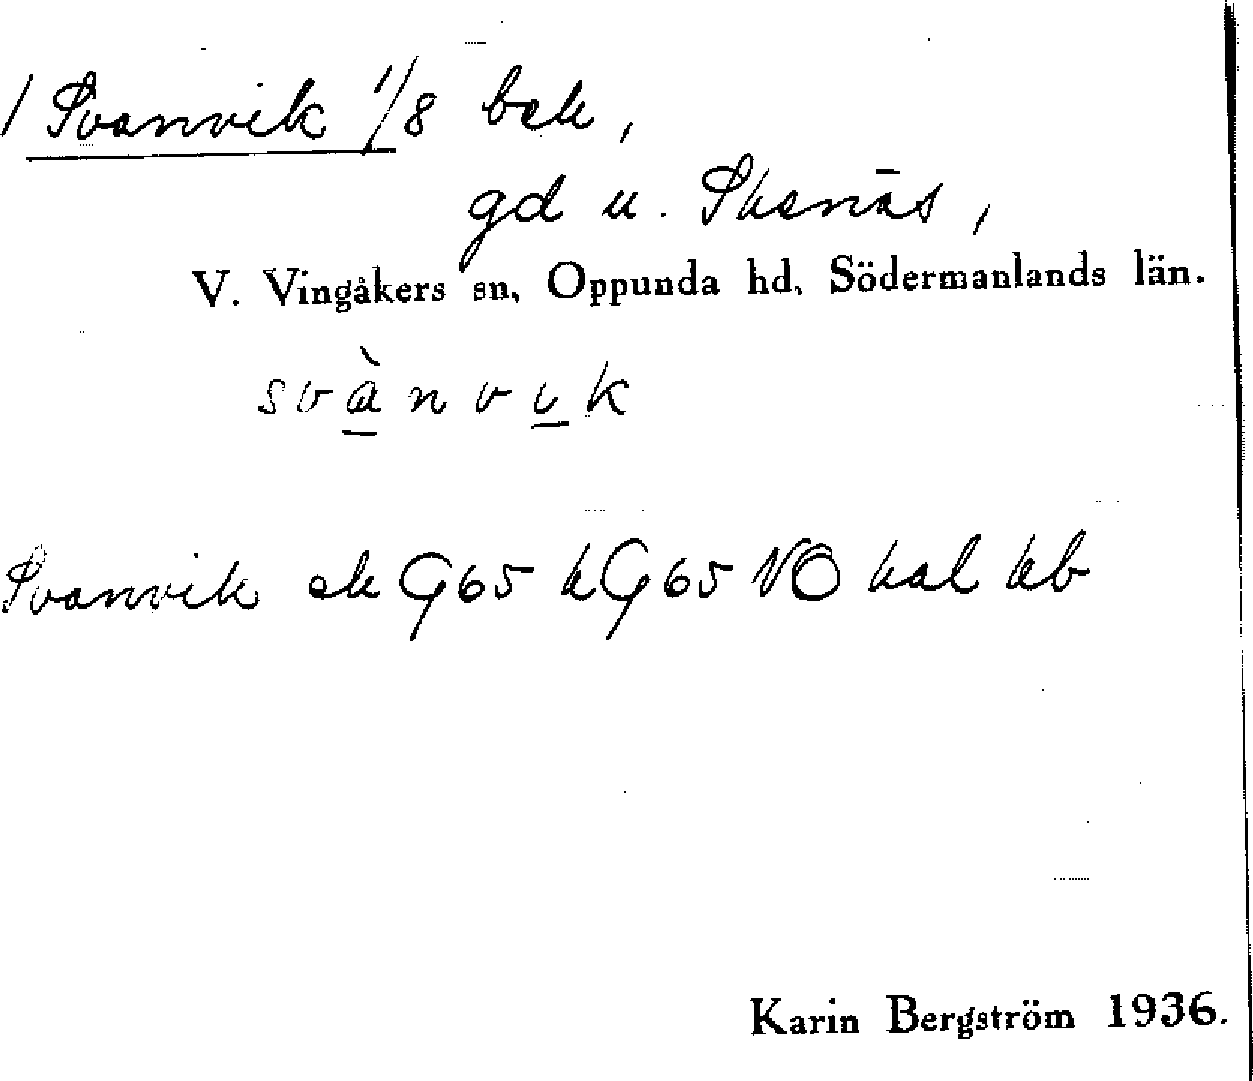 1 Svanvik 1/8 bek,
gd u. Skenäs,
V. Vingåkers sn, Oppunda hd, Södermanlands län.
svànvik
Svanvik ek G65 kG65 NO kal kb
Karin Bergström 1936.